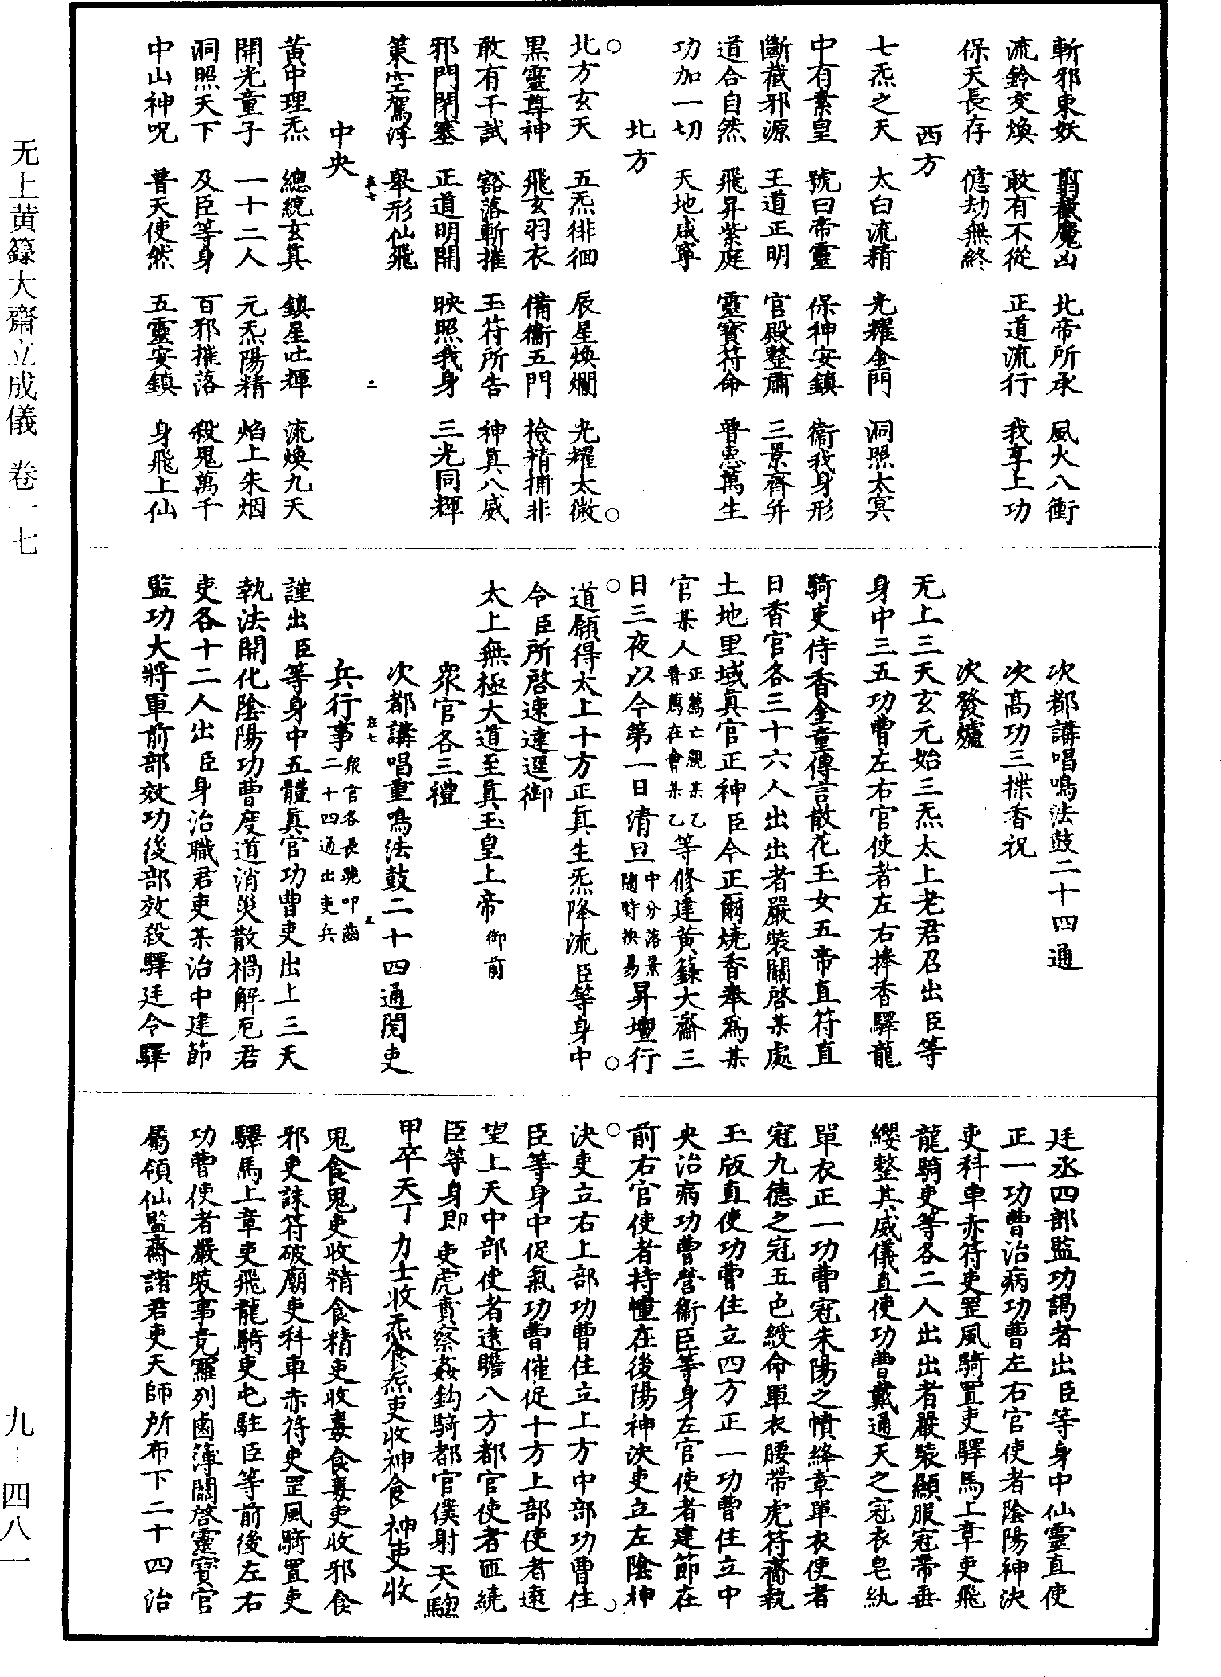 斬邪束妖　翦馘魔凶　北帝所承　風火八衝
流鈴交煥　敢有不從　正道流行　我享上功
保天長存　億劫無終
西方
七炁之天　太白流精　光耀金門　洞照太冥
中有素皇　號曰帝靈　保神安鎮　衛我身形
斷截邪源　王道正明　官殿整肅　三景齊并
道合自然　飛昇紫庭　靈寶符命　普惠萬生
功加一切　天地咸寧
北方
北方玄天　五炁徘徊　辰星煥爛　光耀太微
黑靈尊神　飛玄羽衣　備衛五門　檢精捕非
敢有干試　豁落斬摧　玉符所告　神真八威
邪門閉塞　正道明開　映照我身　三光同輝
策空駕浮　舉形仙飛
中央
黃中理炁　總統玄真　鎮星吐輝　流煥九天
開光童子　一十二人　元炁陽精　焰上朱烟
洞照天下　及臣等身　百邪摧落　殺鬼萬千
中山神呪　普天使然　五靈安鎮　身飛上仙
次都講唱鳴法鼓二十四通
次高功三揲香祝
次發爐
无上三天玄元始三炁太上老君召出臣等
身中三五功曹左右官使者左右捧香驛龍
騎吏侍香金童傳言散花玉女五帝直符直
日香官各三十六人出出者嚴裝關啓某處
土地里域真官正神臣今正爾燒香奉爲某
官某人正薦亡親某乙普薦在會某乙等修建黃籙大齋三
日三夜以今第一日清旦中分落景隨時換易昇壇行
道願得太上十方正真生炁降流臣等身中
令臣所啓速達逕御
太上無極大道至真玉皇上帝御前
衆官各三禮
次都講唱重鳴法鼓二十四通閱吏
兵行事衆官各長跪叩齒二十四通出吏兵
謹出臣等身中五體真官功曹吏出上三天
執法開化陰陽功曹度道消災散禍解厄君
吏各十二人出臣身治職君吏某治中建節
監功大將軍前部效功後部效殺驛廷令驛
廷丞四部監功謁者出臣等身中仙靈直使
正一功曹治病功曹左右官使者陰陽神決
吏科車赤符吏罡風騎置吏驛馬上章吏飛
龍騎吏等各二人出出者嚴裝顯服冠帶垂
纓整其威儀直使功曹戴通天之冠衣皂紈
單衣正一功曹冠朱陽之幘絳章單衣使者
冠九德之冠五色綬命單衣腰帶虎符齎執
玉版直使功曹住立四方正一功曹住立中
央治病功曹營衛臣等身左官使者建節在
前右官使者持幢在後陽神決吏立左陰神
決吏立右上部功曹住立上方中部功曹住
臣等身中促氣功曹催促十方上部使者遠
望上天中部使者遠瞻八方都官使者匝繞
臣等身即吏虎賁察姦鈎騎都官僕射天騶
甲卒天丁力士收炁食炁吏收神食神吏收
鬼食鬼吏收精食精吏收毒食毒吏收邪食
邪吏誅符破廟吏科車赤符吏罡風騎置吏
驛馬上章吏飛龍騎吏屯駐臣等前後左右
功曹使者嚴裝事竟羅列鹵簿關啓靈寶官
屬領仙監齋諸君吏天師所布下二十四治
无上黄籙大齋立成儀　卷一七
九－四八一